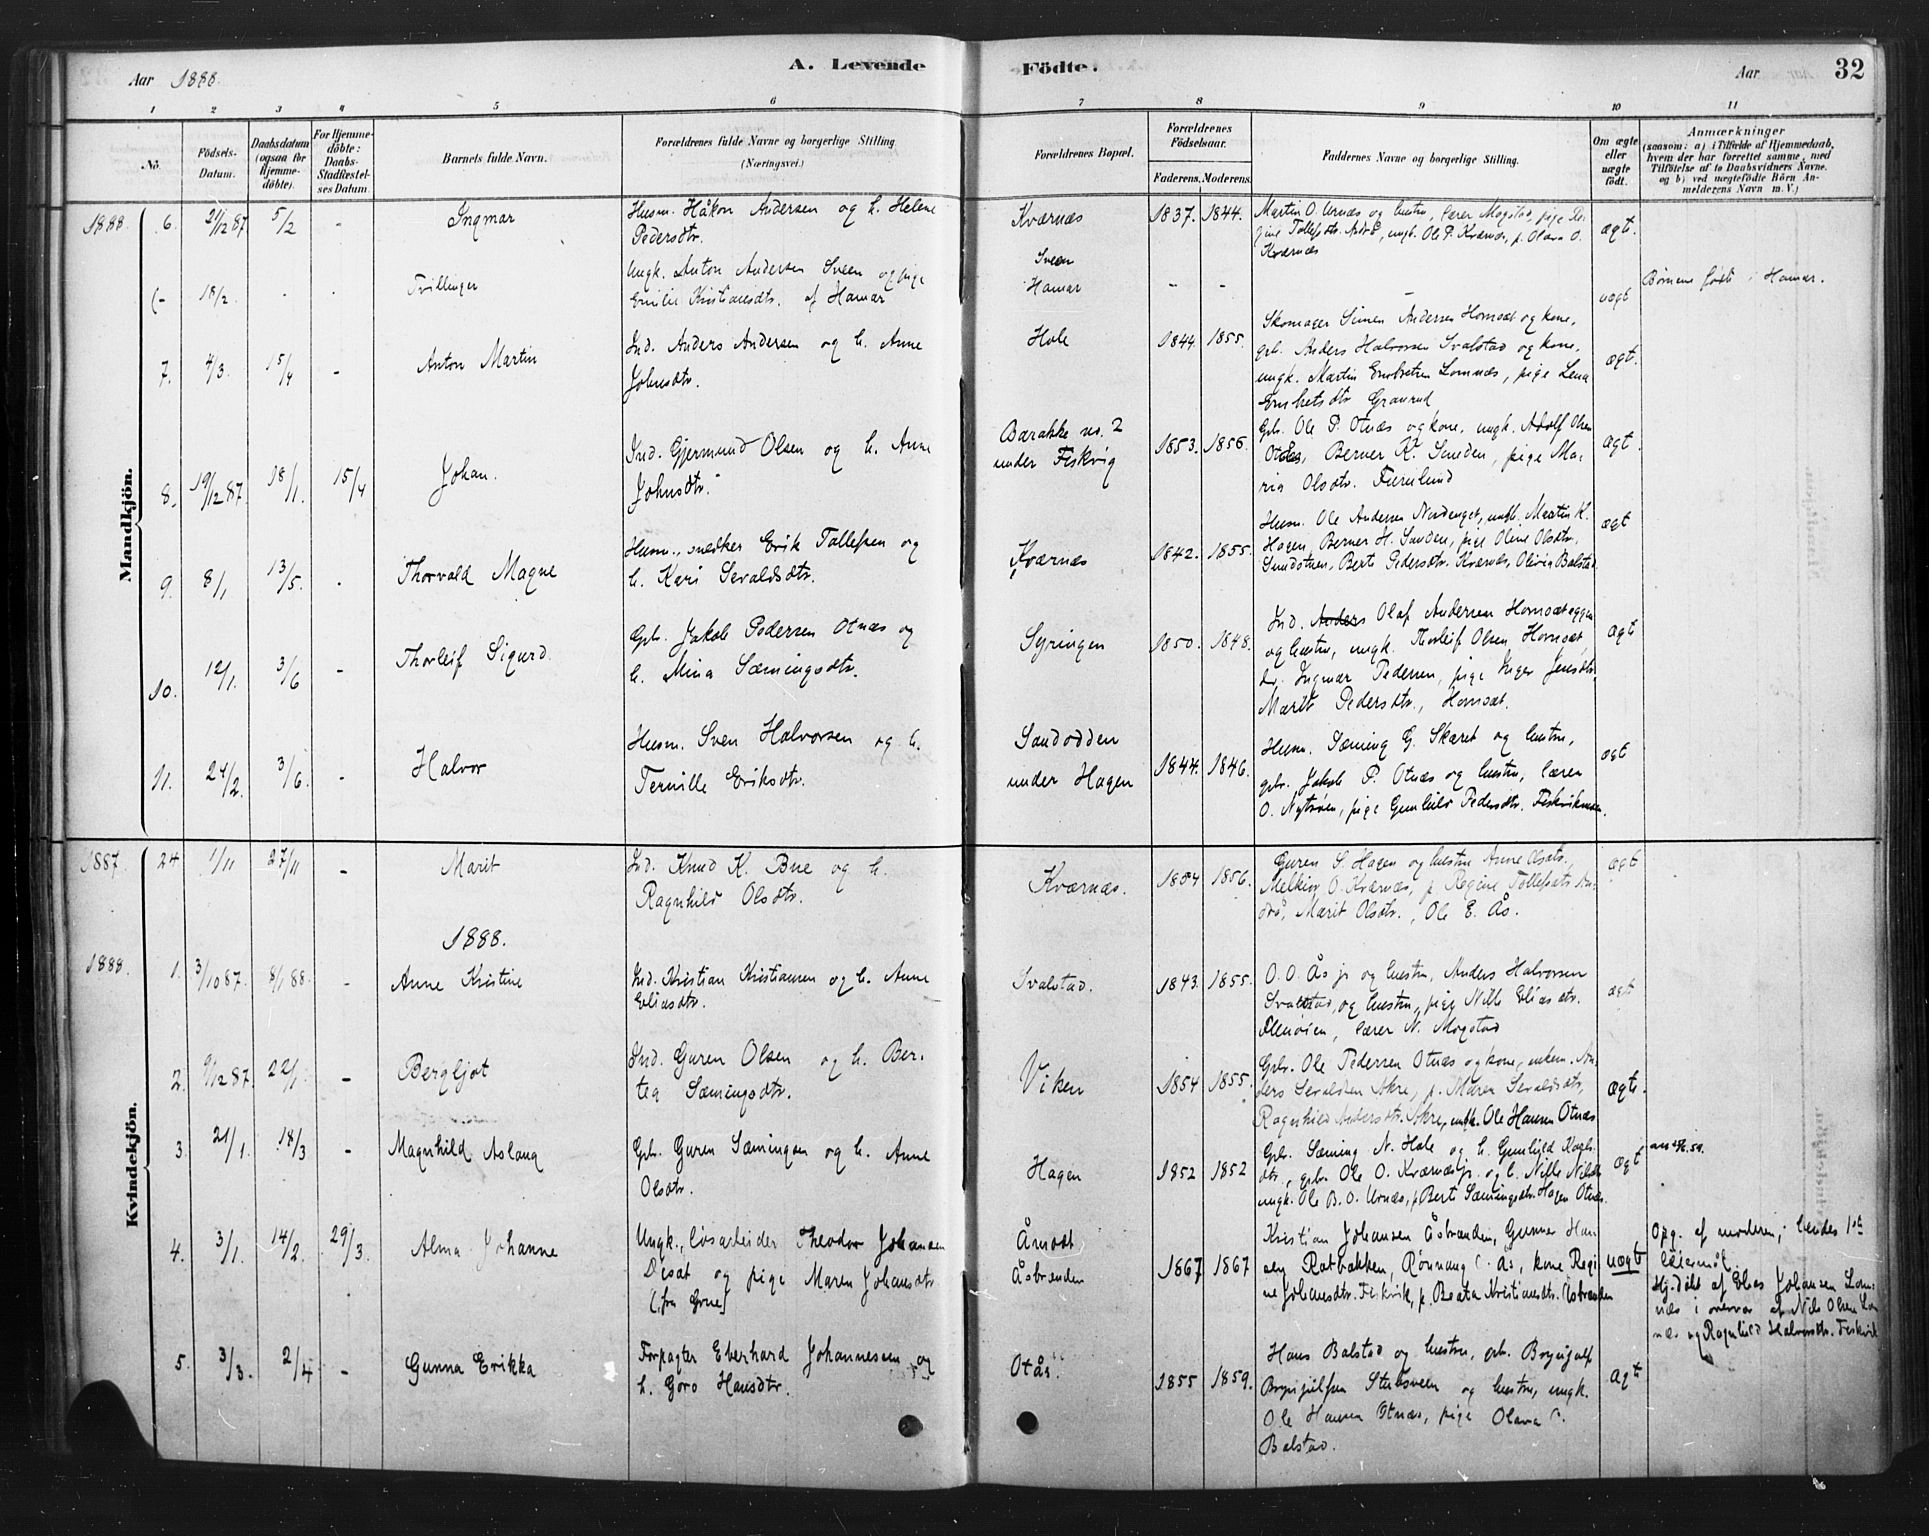 Aar 1888.
A. Levende
Födte.
Aar
32
1 2 3 4 5 6 7 8 9 10 11
No.
Födsels-Datum.
Daabsdatum (ogsaa for Hjemme-döbte).
For Hjemme-döbte: Daabs-Stadfæstel-ses Datum.
Barnets fulde Navn.
Forældrenes fulde Navne og borgerlige Stilling (Næringsvei.)
Forældrenes Bopæl.
Forældrenes Födselsaar.
Faderens. Moderens.
Faddernes Navne og borgerlige Stilling.
Om ægte eller uægte födt.
Anmærkninger
(saasom: a) i Tilfælde af Hjemmedaab,
hvem der har forrettet samme, med
Tilföielse af to Daabsvidners Navne.
og b) ved uægtefödte Börn An-
melderens Navn m. V.)
Mandkjön.
1888 6. 21/12 87. 5/2 - Ingmar
Husm. Håkon Andersen og h. Helene
Pedersdtr.
Kværnæs 1837. 1844.
Martin O. Urnæs og hustru, lærer Mogstad, pige Re-
gine Tollefsdtr. , ungk. Ole P. Kværnæs, p. Olava O.
Kværnæs
ægt.
18/2. - - Tvillinger
Ungk. Anton Andersen Sveen og pige
Emilie Kristiansdtr. af Hamar
Sveen
Hamar - - -
uægt
Børnene fødte i Hamar.
7. 4/3. 15/4 - Anton Martin
Ind. Anders Andersen og h. Anne
Johnsdtr.
Hole 1844. 1855.
Skomager Simen Andersen Hornsæt og kone,
grb. Anders Halvorsen Svalstad og kone,
ungk. Martin Embretsen Lomnæs, pige Lena
Embretsdtr Granrud
ægt.
8. 19/12 87. 18/1. 15/4 Johan.
Ind. Gjermund Olsen og h. Anne
Johnsdtr.
Barakke no. 2
under Fiskvig 1853. 1856.
Grb. Ole P. Otnæs og kone, ungk. Adolf Olsen
Otnes, Berner K. Sanden, pige Ma-
ria Olsdtr. Furulund
ægt.
9. 8/1 13/5. - Thorvald Magne
Husm., snedker Erik Tollefsen og
h. Kari Sevaldsdtr.
Kværnæs 1842. 1855.
Husm. Ole Andersen Nordenget, ungk. Martin K.
Hagen, Berner H. Sanden, pige Oline Olsdtr.
Sundstuen, Berte Pedersdtr. Kværnæs, Olivia Balstad
ægt
10. 12/1. 3/6 - Thorleif Sigurd.
Gbr. Jakob Pedersen Otnæs og
h. Mina Sæmingsdtr.
Syringen 1850. 1848.
Ind. Anders Olaf Andersen Hornsæteggen
og hustru, ungk. Thorleif Olsen Hornsæt,
do. Ingmar Pedersen, pige Inger Jensdtr.
Marit Pedersdtr., Hornsæt.
ægt
11. 24/2. 3/6. - Halvor
Husm. Sven Halvorsen og h.
Pernille Eriksdtr.
Sandodden
under Hagen 1844. 1846.
Husm. Sæming G. Skaret og hustru,
gbr. Jakob P. Otnæs og hustru, lærer
O. Nytrøen, pige Gunhild Pedersdtr. Fiskvikmoen.
ægt
Kvindekjön.
1887. 24 1/11 27/11 - Marit
Ind. Knud K. Bue og h.
Ragnhild Olsdtr.
Kværnæs. 1854 1856.
Guren S. Hagen og hustru Anne Olsdtr.,
Melkior O. Kværnæs, p. Regine Tollefsdtr. An-
drå, Marit Olsdtr., Ole E. Ås.
ægt
1888.
1888. 1. 3/10 87. 8/1 88. - Anne Kristine
Ind. Kristian Kristiansen og h. Anne
Eliasdtr.
Svalstad. 1843. 1855.
O. O. Ås jr og hustru, Anders Halvorsen
Svalstad, og hustru, pige Nille Eliasdtr.
, lærer N. Mogstad
ægt
2. 9/12 87. 22/1. - Bergljot
Ind. Guren Olsen og h. Ber-
tea Sæmingsdtr.
Viken 1854 1855.
Gbr. Ole Pedersen Otnæs og kone, An-
ders Sevaldsen Akre, p. Maren Sevaldsdtr,
Ragnhild Andersdtr. Akre, ungk. Ole Hansen Otnæs
ægte.
3. 21/1. 18/3 - Magnhild Aslaug
Gbr. Guren Sæmingsen og h. Anne
Olsdtr.
Hagen 1852 1852
Gbr. Sæming N. Hole og h. Gunhild Karls-
dtr, gbr. Ole O. Kværnæs jr. og h. Nille Nilsdtr
ungk. Ole B. O. Urnæs, p. Berit Sæmingsdtr. Hagen Otnæs
ægt
4. 3/1. 14/2. 29/3. Alma Johanne
Ungk., løsarbeider Theodor Johansen
Disæt og pige Maren Johansdtr.
(fra Grue)
Åmodt
Åsbrænden 1867 1867
Kristian Johansen Åsbrænden, Gunner Han-
sen Ratbakken, Rønnaug O. Ås, kone Regi-
ne Johansdtr. Fiskvik, p. Beata Kristiansdtr. Åsbrænden
uægt
Opg. af moderen; hendes 1ste
leiermål.
Hj.døbt af Elias Johansen Lom-
næs i overvær af Nils Olsen Lom-
næs og Ragnhild Halvorsdtr. Fiskvik
5. 3/3. 2/4 - Gunna Erikka
Forpagter Eberhard Johannesen og
h. Goro Hansdtr.
Otås 1855 1859.
Hans Balstad og hustru, grb. Brynjulf
Brynjulfsen Stubsveen og hustru, ungk.
Ole Hansen Otnæs, pige Olava O.
Balstad.
ægt